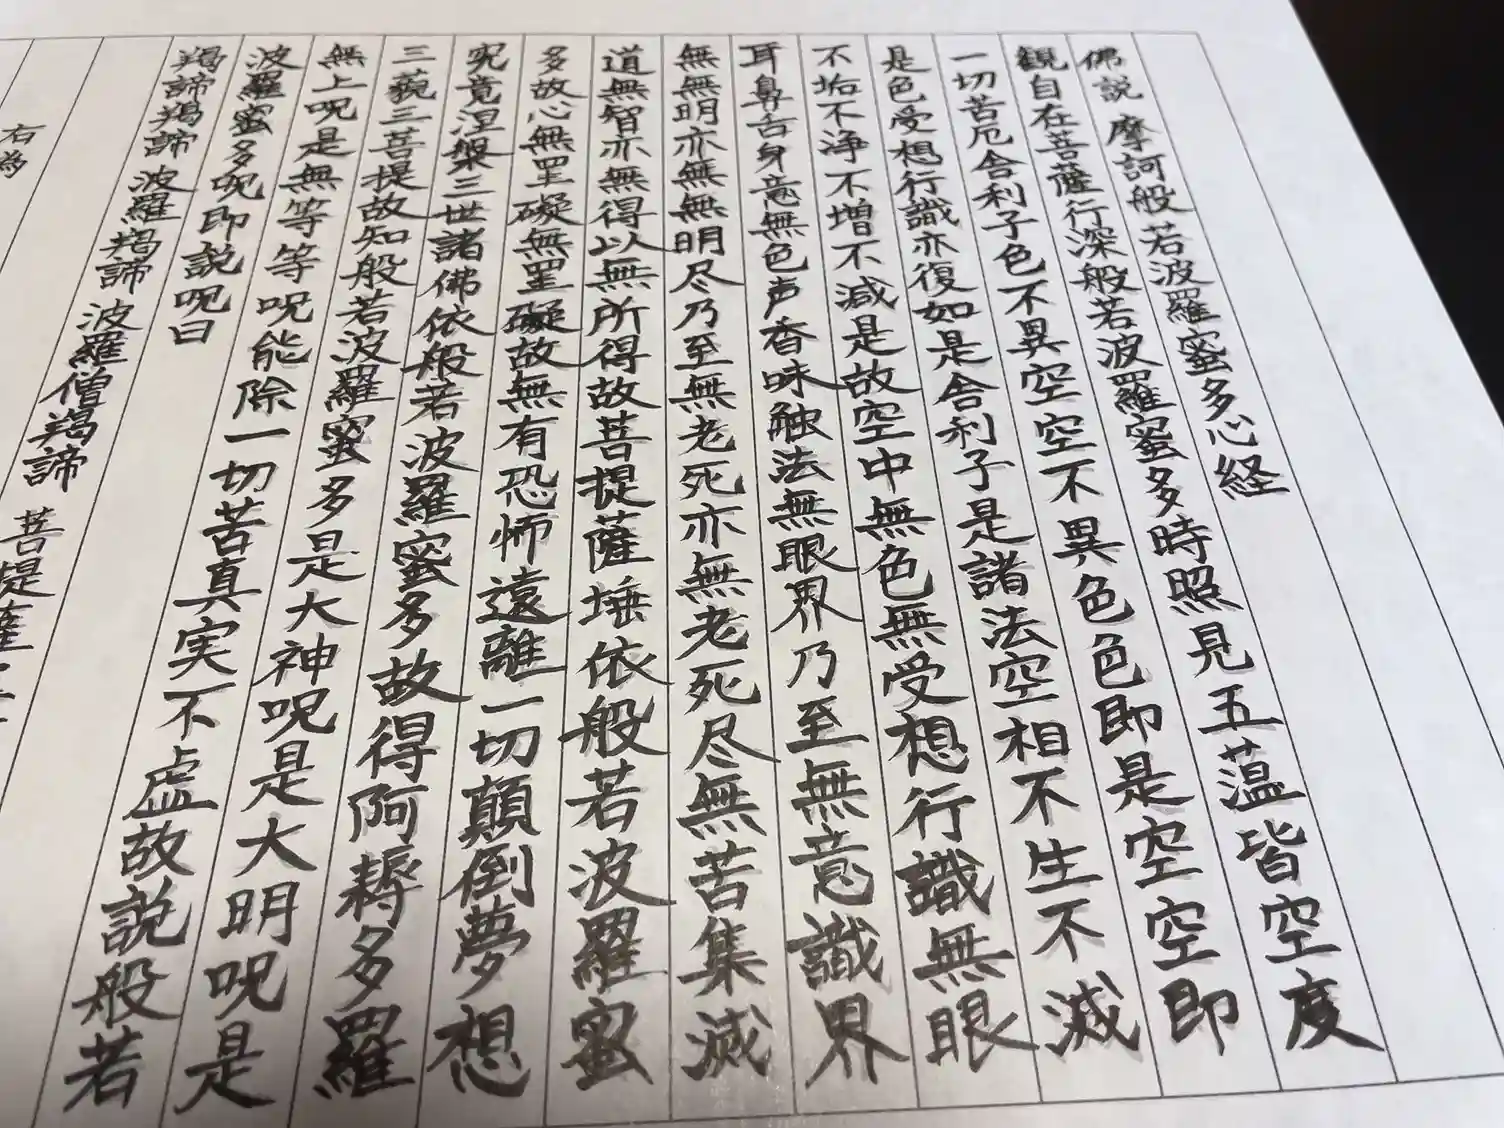 佛説摩訶般若波羅蜜多心経
観自在菩薩行深般若波羅蜜多時照見五蘊皆空度
一切苦厄舎利子色不異空空不異色色即是空空即
是色受想行識亦復如是舎利子是諸法空相不生不滅
不垢不浄不増不減是故空中無色無受想行識無眼
耳鼻舌身意無色声香味触法無眼界乃至無意識界
無無明亦無無明尽乃至無老死亦無老死尽無苦集滅
道無智亦無得以無所得故菩提薩埵依般若波羅蜜
多故心無罣礙無罣礙故無有恐怖遠離一切顛倒夢想
究竟涅槃三世諸佛依般若波羅蜜多故得阿耨多羅
三藐三菩提故知般若波羅蜜多是大神呪是大明呪是
無上呪是無等等呪能除一切苦真実不虚故説般若
波羅蜜多呪即説呪曰
羯諦羯諦波羅羯諦波羅僧羯諦菩提薩
右為